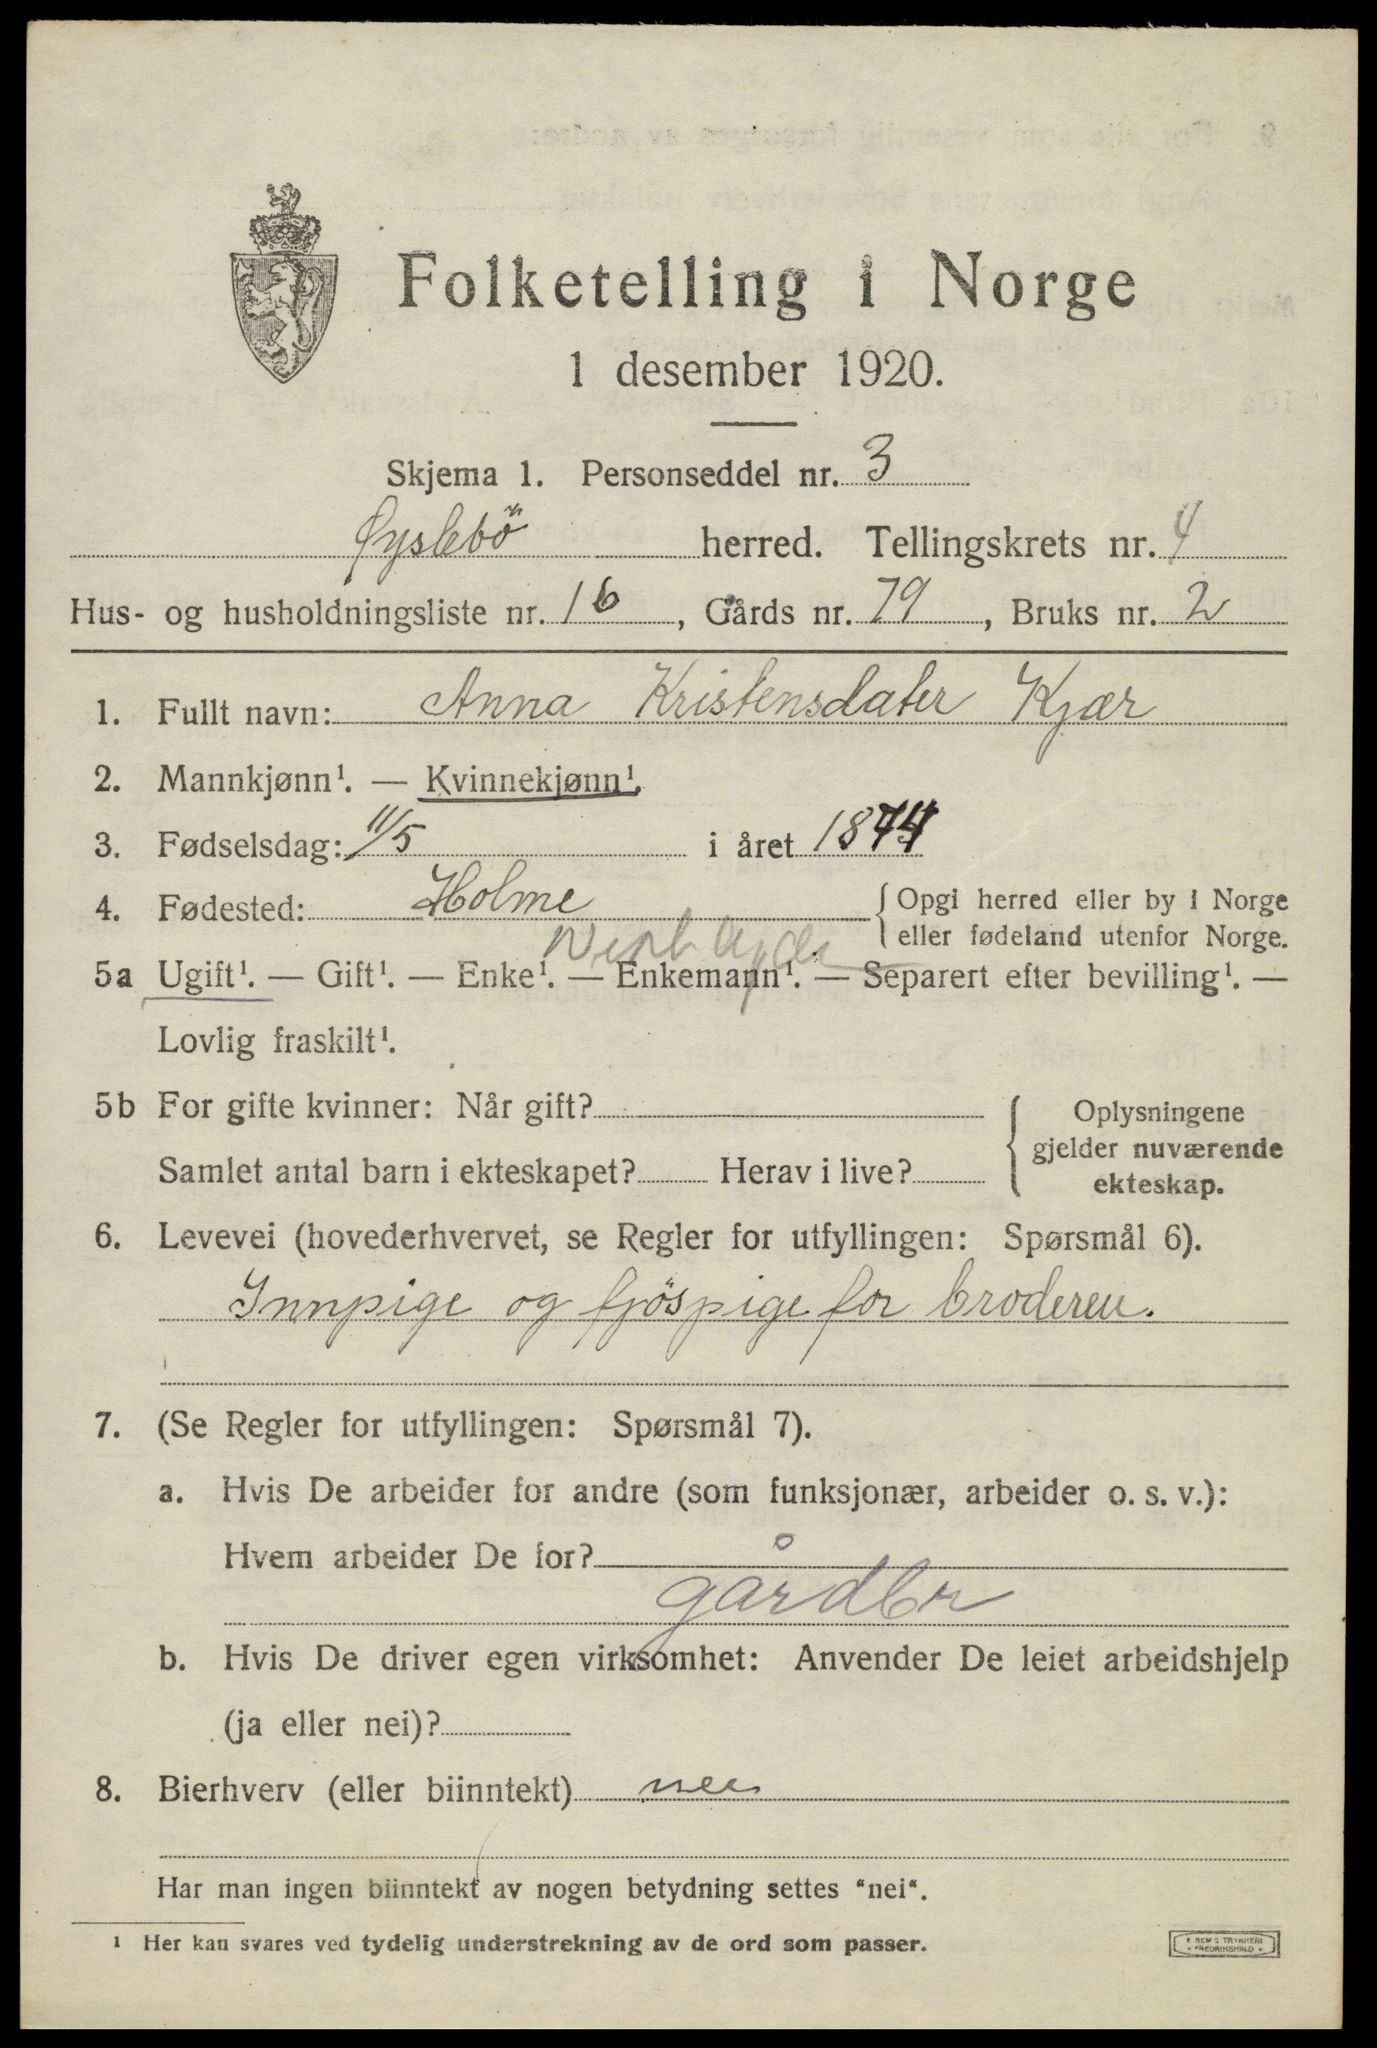 Folketelling i Norge
1 desember 1920.
Skjema 1. Personseddel nr. 3
Øyslebö herred. Tellingskrets nr. 4
Hus- og husholdningsliste nr. 16, Gårds nr. 79, Bruks nr. 2
1. Fullt navn: Anna Kristensdater Kjær
2. Mannkjønn¹. — Kvinnekjønn¹.
3. Fødselsdag: 11/5 i året 1874
4. Fødested: Holme { Opgi herred eller by i Norge
eller fødeland utenfor Norge.
Vest Agder
5a Ugift¹. — Gift¹. — Enke¹. — Enkemann¹. — Separert efter bevilling¹. —
Lovlig fraskilt¹.
5b For gifte kvinner: Når gift? { Oplysningene
gjelder nuværende
Samlet antal barn i ekteskapet? Herav i live? ekteskap.
6. Levevei (hovederhvervet, se Regler for utfyllingen: Spørsmål 6).
Innpige og fjöspige for broderen.
7. (Se Regler for utfyllingen: Spørsmål 7).
a. Hvis De arbeider for andre (som funksjonær, arbeider o. s. v.):
Hvem arbeider De for?
gårdbr
b. Hvis De driver egen virksomhet: Anvender De leiet arbeidshjelp
(ja eller nei)?
8. Bierhverv (eller biinntekt) nei
Har man ingen biinntekt av nogen betydning settes "nei".
¹ Her kan svares ved tydelig understrekning av de ord som passer.
TRYKKERI
FREDRIKSHALD